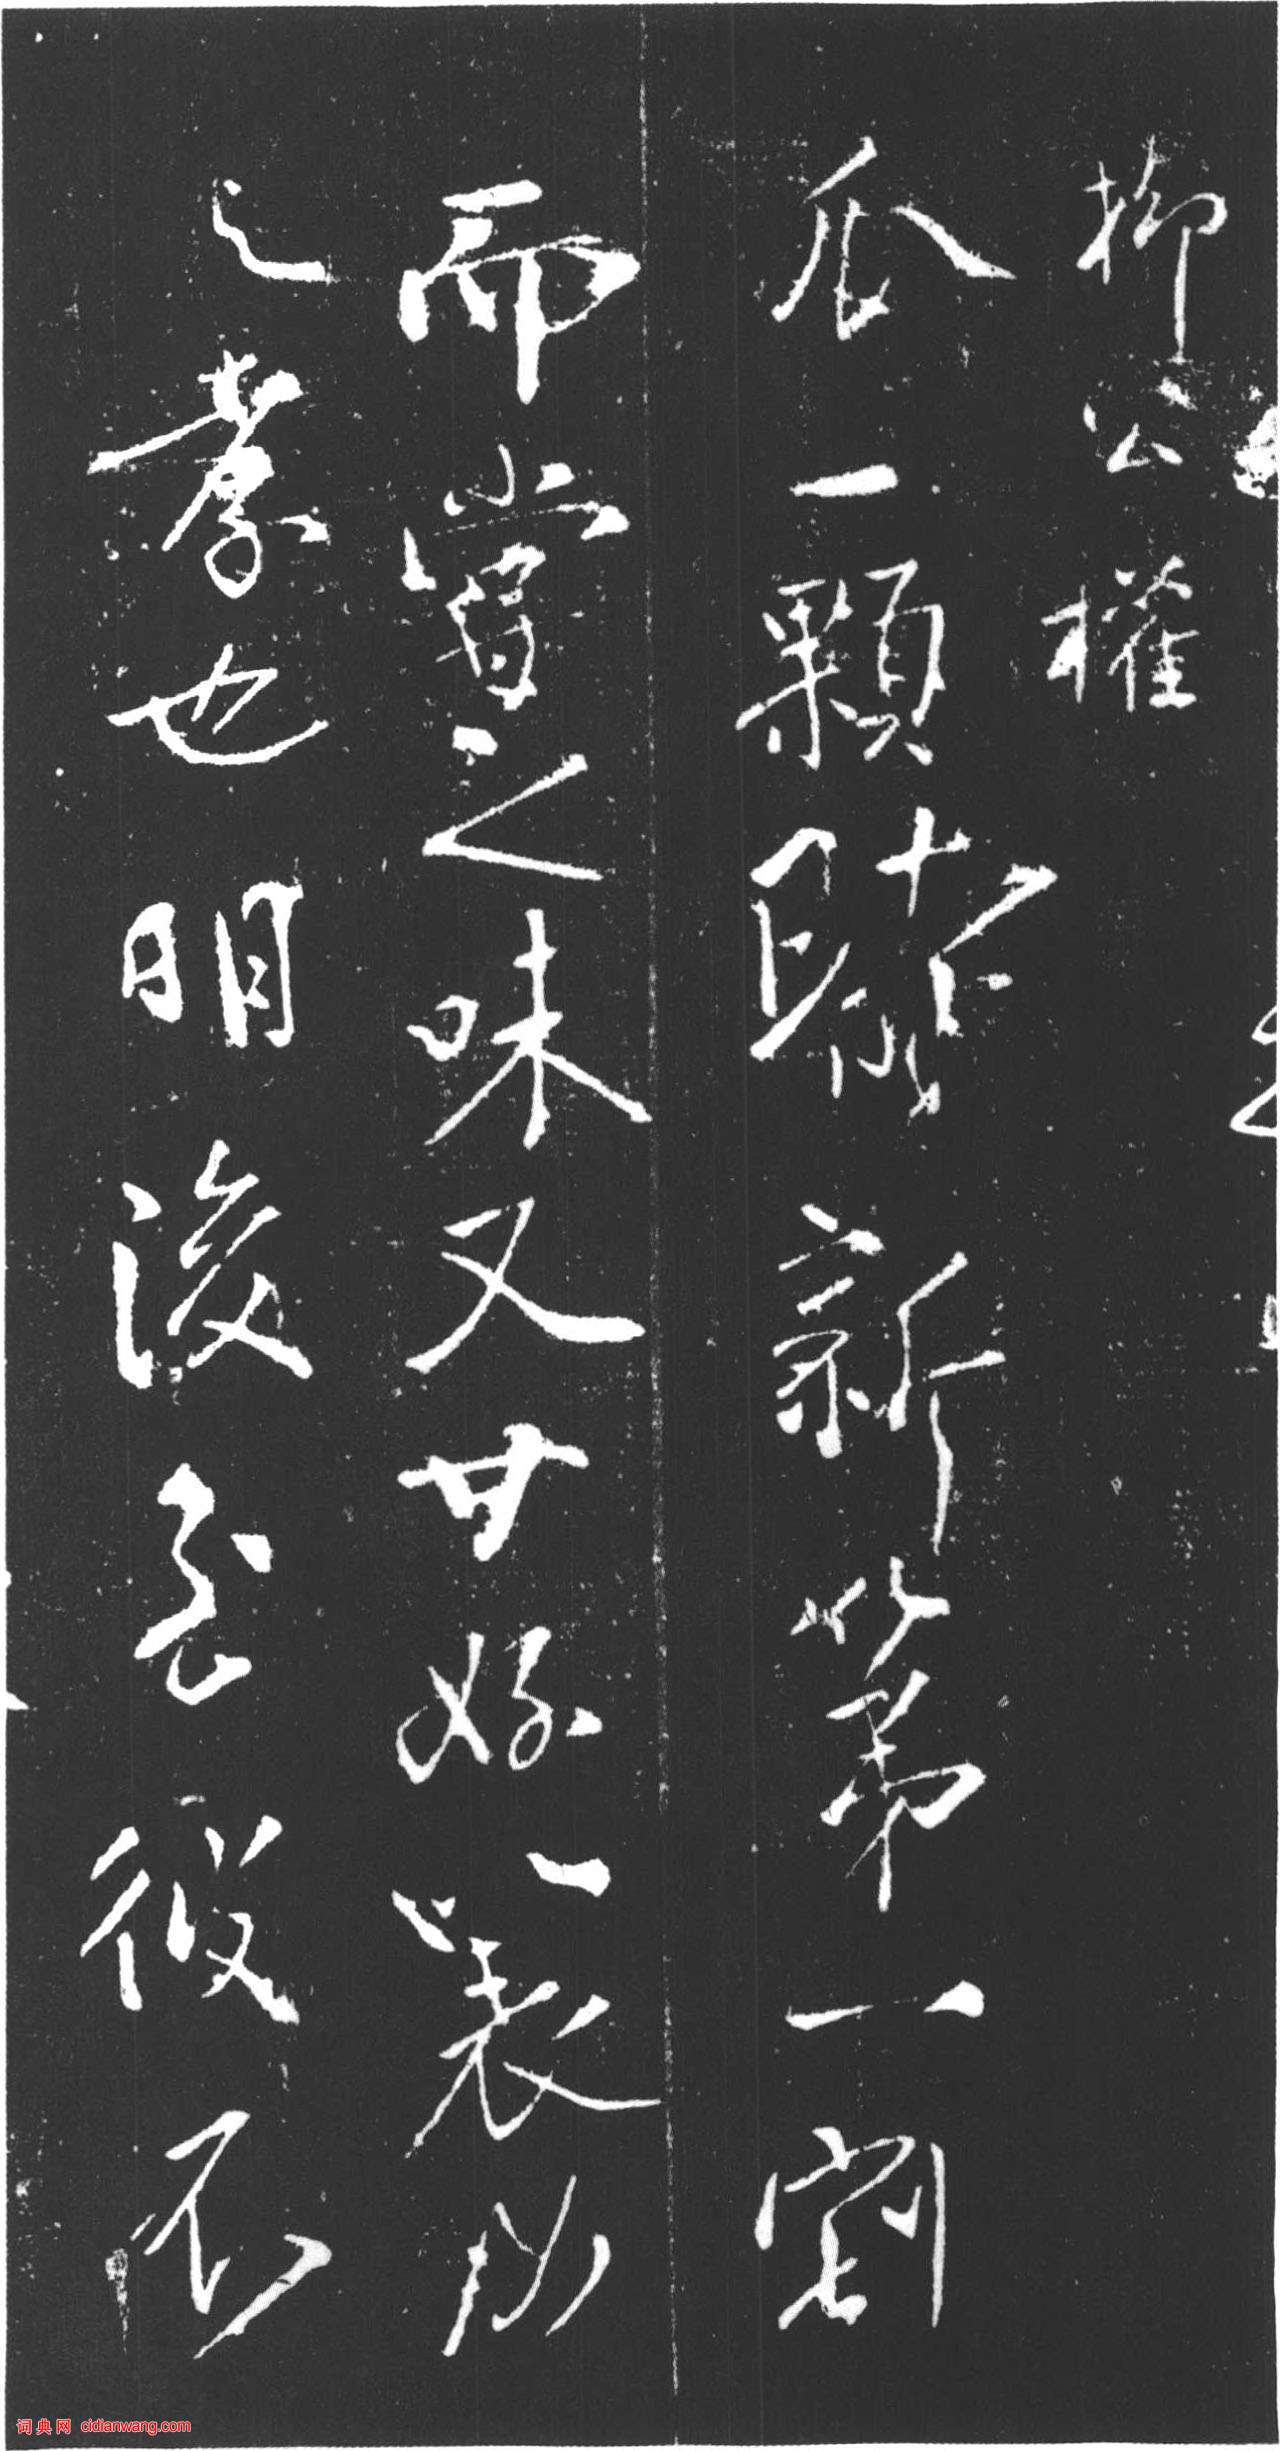 柳公權
瓜一顆新第一割
而嘗之味又甘好表
之孝也明後至不
词典网 cidianwang.com